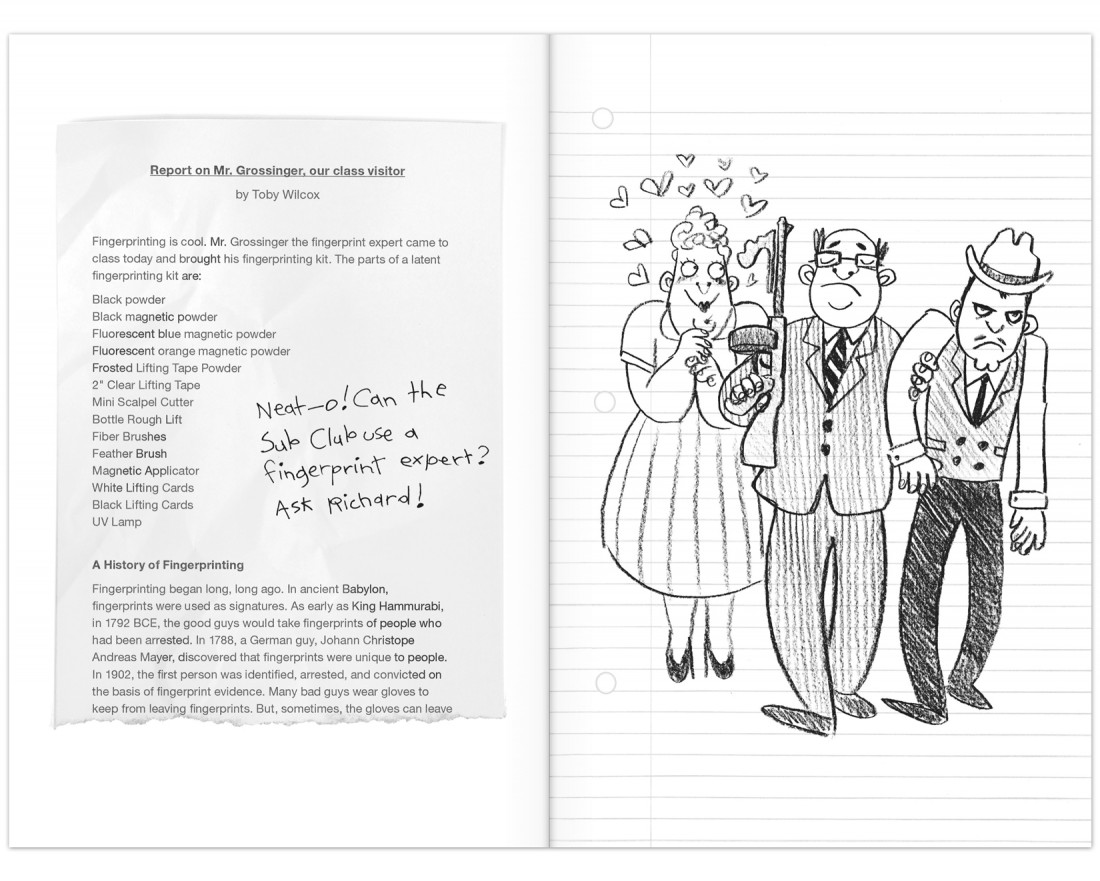 Report on Mr. Grossinger, our class visitor
by Toby Wilcox
Fingerprinting is cool. Mr. Grossinger the fingerprint expert came to
class today and brought his fingerprinting kit. The parts of a latent
fingerprinting kit are:
Black powder
Black magnetic powder
Fluorescent blue magnetic powder
Fluorescent orange magnetic powder
Frosted Lifting Tape Powder
2" Clear Lifting Tape
Mini Scalpel Cutter
Bottle Rough Lift
Fiber Brushes
Feather Brush
Magnetic Applicator
White Lifting Cards
Black Lifting Cards
UV Lamp
Neat-o! Can the
Sub Club use a
fingerprint expert?
Ask Richard!
A History of Fingerprinting
Fingerprinting began long, long ago. In ancient Babylon,
fingerprints were used as signatures. As early as King Hammurabi,
in 1792 BCE, the good guys would take fingerprints of people who
had been arrested. In 1788, a German guy, Johann Christope
Andreas Mayer, discovered that fingerprints were unique to people.
In 1902, the first person was identified, arrested, and convicted on
the basis of fingerprint evidence. Many bad guys wear gloves to
keep from leaving fingerprints. But, sometimes, the gloves can leave